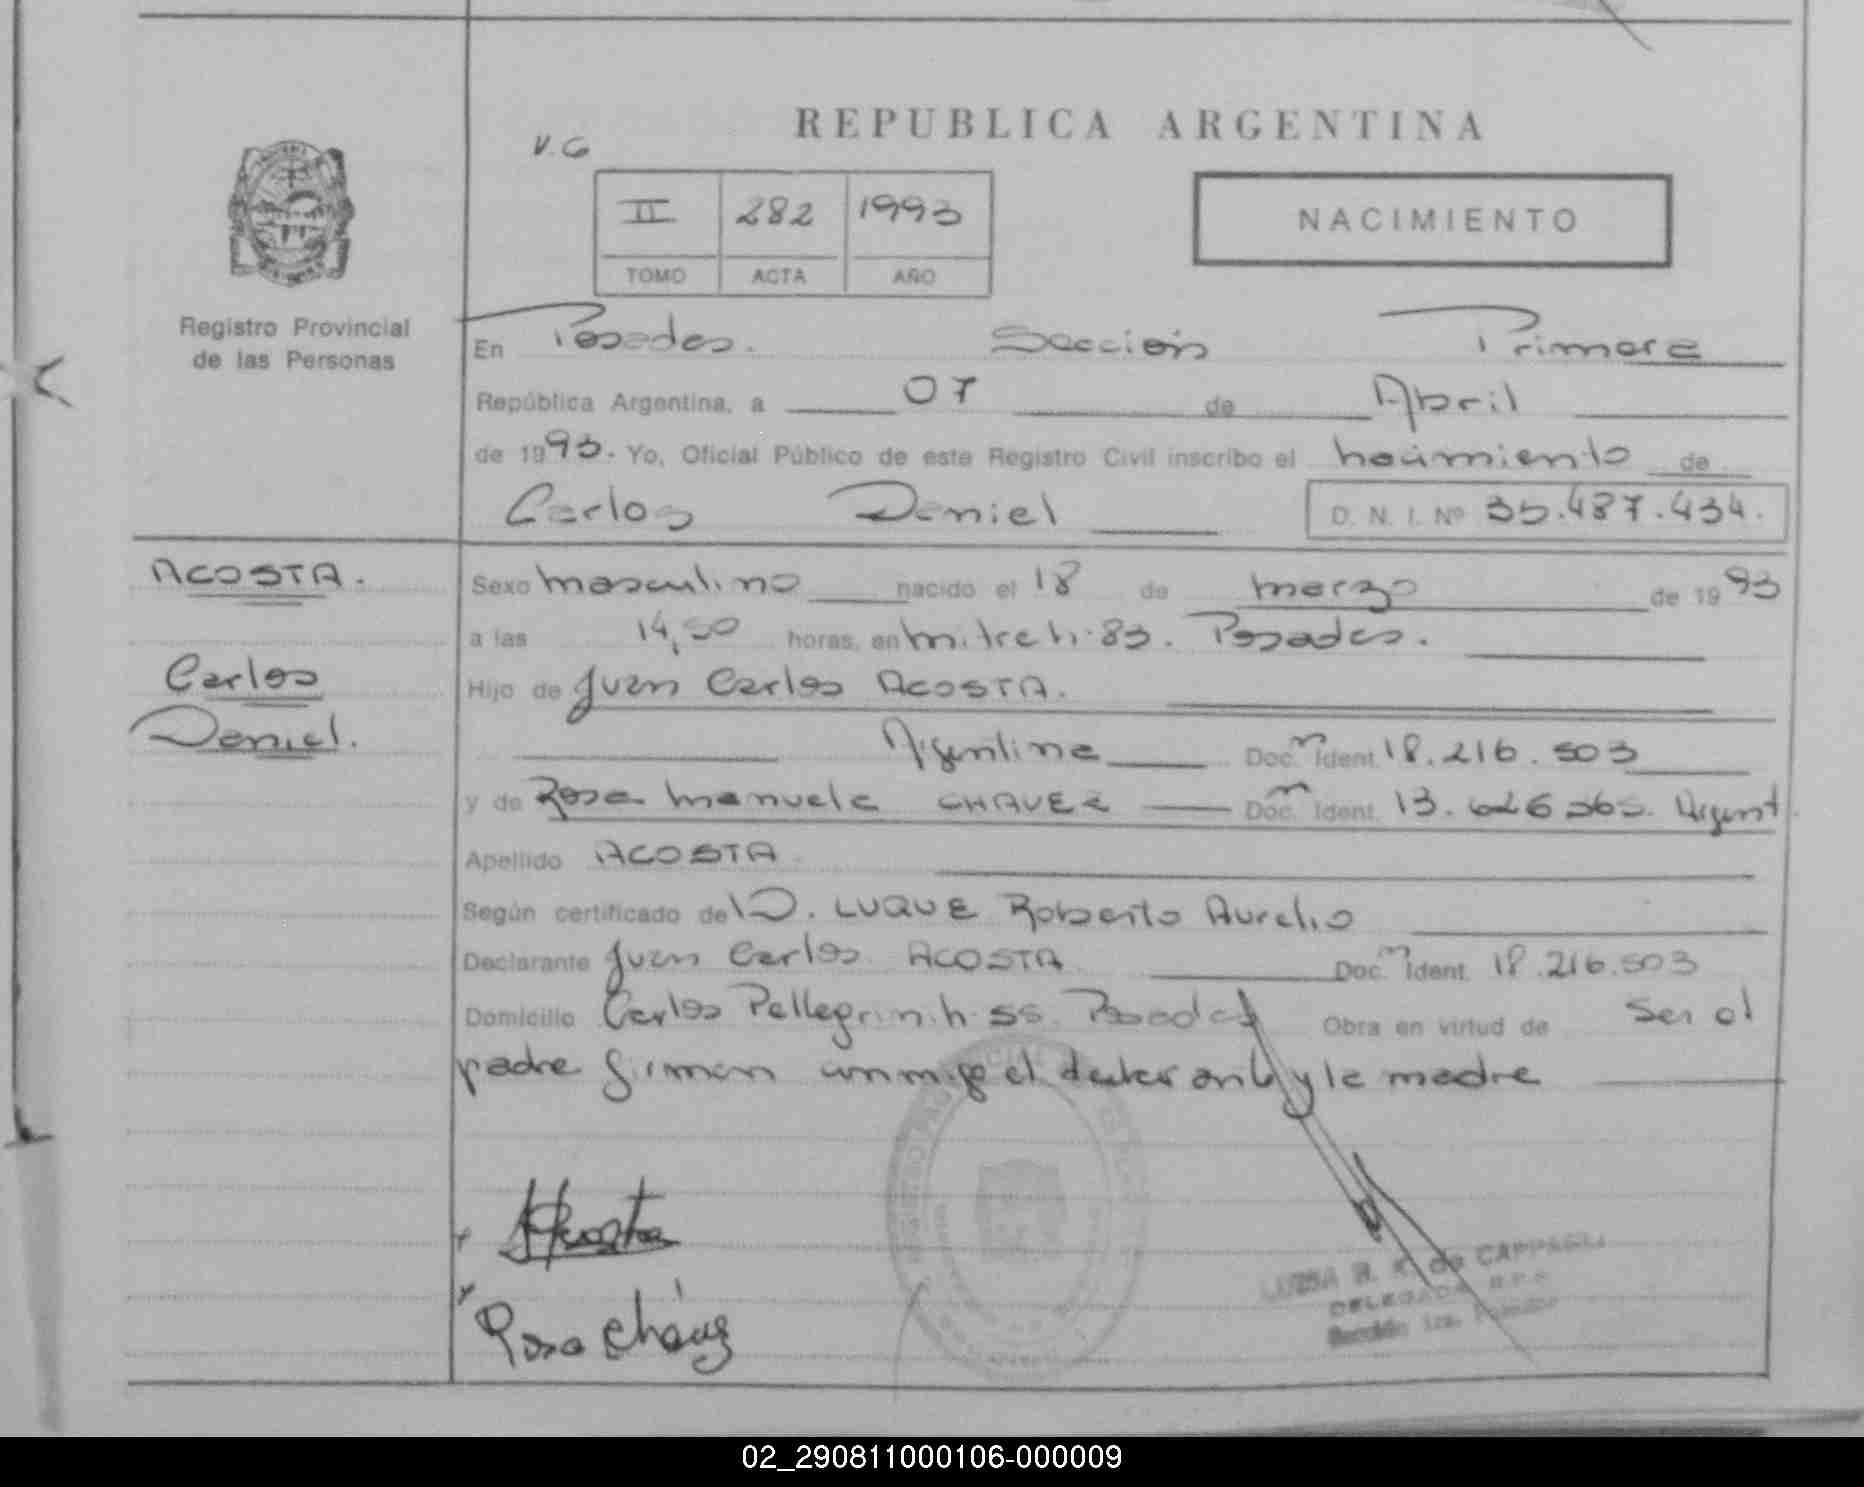 REPUBLICA ARGENTINA
V.G
II 282 1993
TOMO ACTA AÑO
NACIMIENTO
Registro Provincial
de las Personas
En Posadas. Sección Primera
República Argentina, a 07 de Abril
de 1993. Yo, Oficial Público de este Registro Civil inscribo el nacimiento de
Carlos Daniel D. N. I. Nº 35.487.434.
ACOSTA.
Carlos
Daniel.
Sexo masculino nacido el 18 de marzo de 1993
a las 14,50 horas, en mitre n. 83. Posadas.
Hijo de Juan Carlos ACOSTA.
Argentina Doc. Ident. 18.216.503
y de Rosa manuela CHAVEZ Doc. Ident. 13. Argent.
Apellido ACOSTA
Según certificado de LUQUE Roberto Aurelio
Declarante Juan Carlos ACOSTA Doc. Ident. 18.216.503
Domicilio Carlos Pellegrini n. 55. Posadas Obra en virtud de ser el
padre firman conmigo el declarante y la madre
Acosta
Rosa Chávez
DELEGADA
Sección 1ra.
02_290811000106-000009